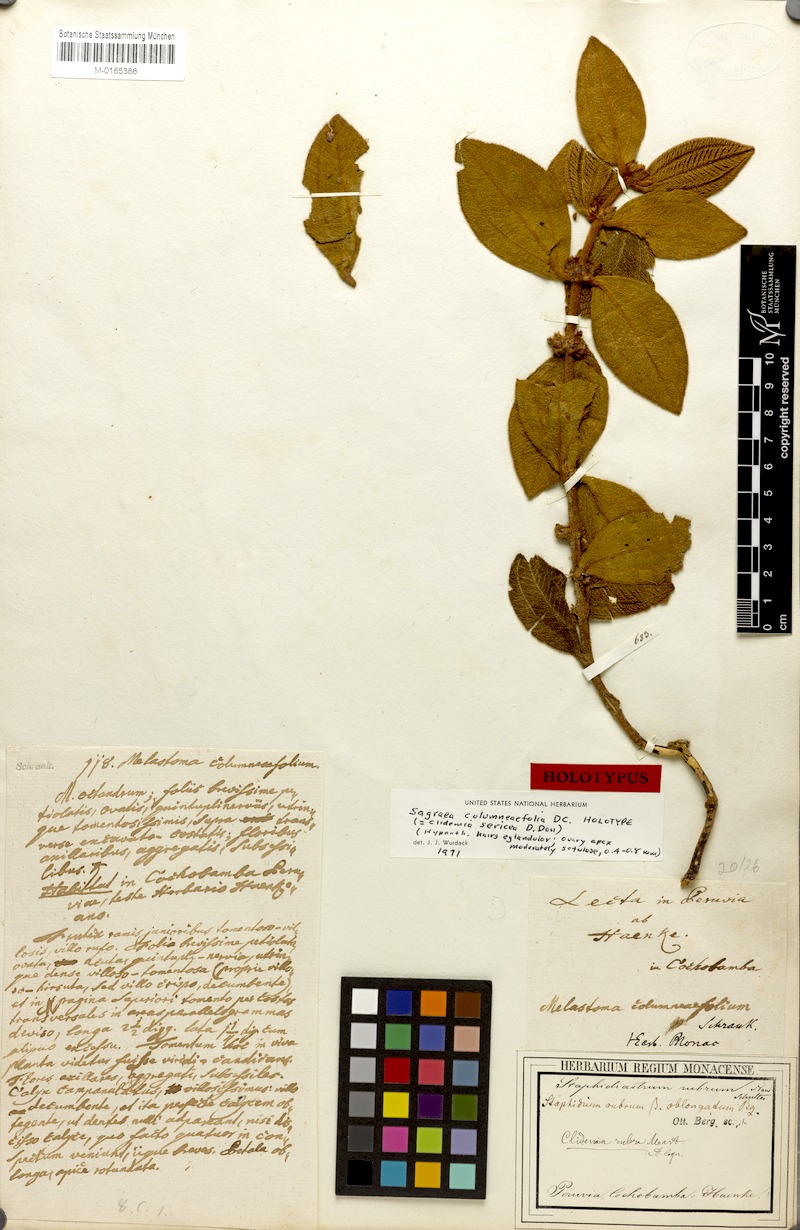 Botanische Staatssammlung München
M-0165386
BOTANISCHE
STAATSSAMMLUNG
MÜNCHEN
0 1 2 3 4 5 6 7 8 9 10
cm
copyright reserved
683.
HOLOTYPUS
UNITED STATES NATIONAL HERBARIUM
Sagraea columneaefolia DC. HOLOTYPE
(= Clidemia sericea D. Don)
(Hypanth. hairs eglandular; ovary apex
moderately setulose, 0.4-0.8 mm)
det. J. J. Wurdack
1971
20/26
Schrank.
Melastoma columneaefolium.
M. octandrum; foliis brevissime pe
tiolatis, ovatis, quintuplinerviis, utrin,
que tomentosissimis, supra trans,
verse excavato-costatis; floribus
axillaribus, aggregatis, subsessi,
libus. ♄
Habitat in Cochobamba Peru,
viae, teste Herbario Haenke,
ano.
Frutex ramis junioribus tomentoso-vil,
losis, villo rufo. Folia brevissime petiolata,
ovata, acuta, quintupli-nervia, utrin,
que dense villoso-tomentosa (proprie villo,
so-hirsuta, sed villo crispo, decumbente),
et in pagina superiori tomento per costas
transversales in areas parallelogrammas
diviso, longa 2 1/2 digg. lata
aliquo excessu. Tomentum hoc in viva
planta videtur fuisse viridi-candicans.
Flores axillares, aggregati, subsessiles.
Calyx campanulatus, villosissimus villo
decumbente, et ita calycem ob,
tegente, ut dentes nulli appareant, nisi dis,
cisso calyce, quo facto quatuor in con,
spectum veniunt, iique breves. Petala ob,
longa, apice rotundata.
Lecta in Peruvia
ab
Haenke.
in Cochobamba
Melastoma columneaefolium
Schrank.
Herb. Monac
HERBARIUM REGIUM MONACENSE.
Staphidiastrum rubrum
Staphidium rubrum β. oblongatum
Ott. Berg sc.
Clidemia rubra Mart.
Peruvia, Cochobamba: Haenke.